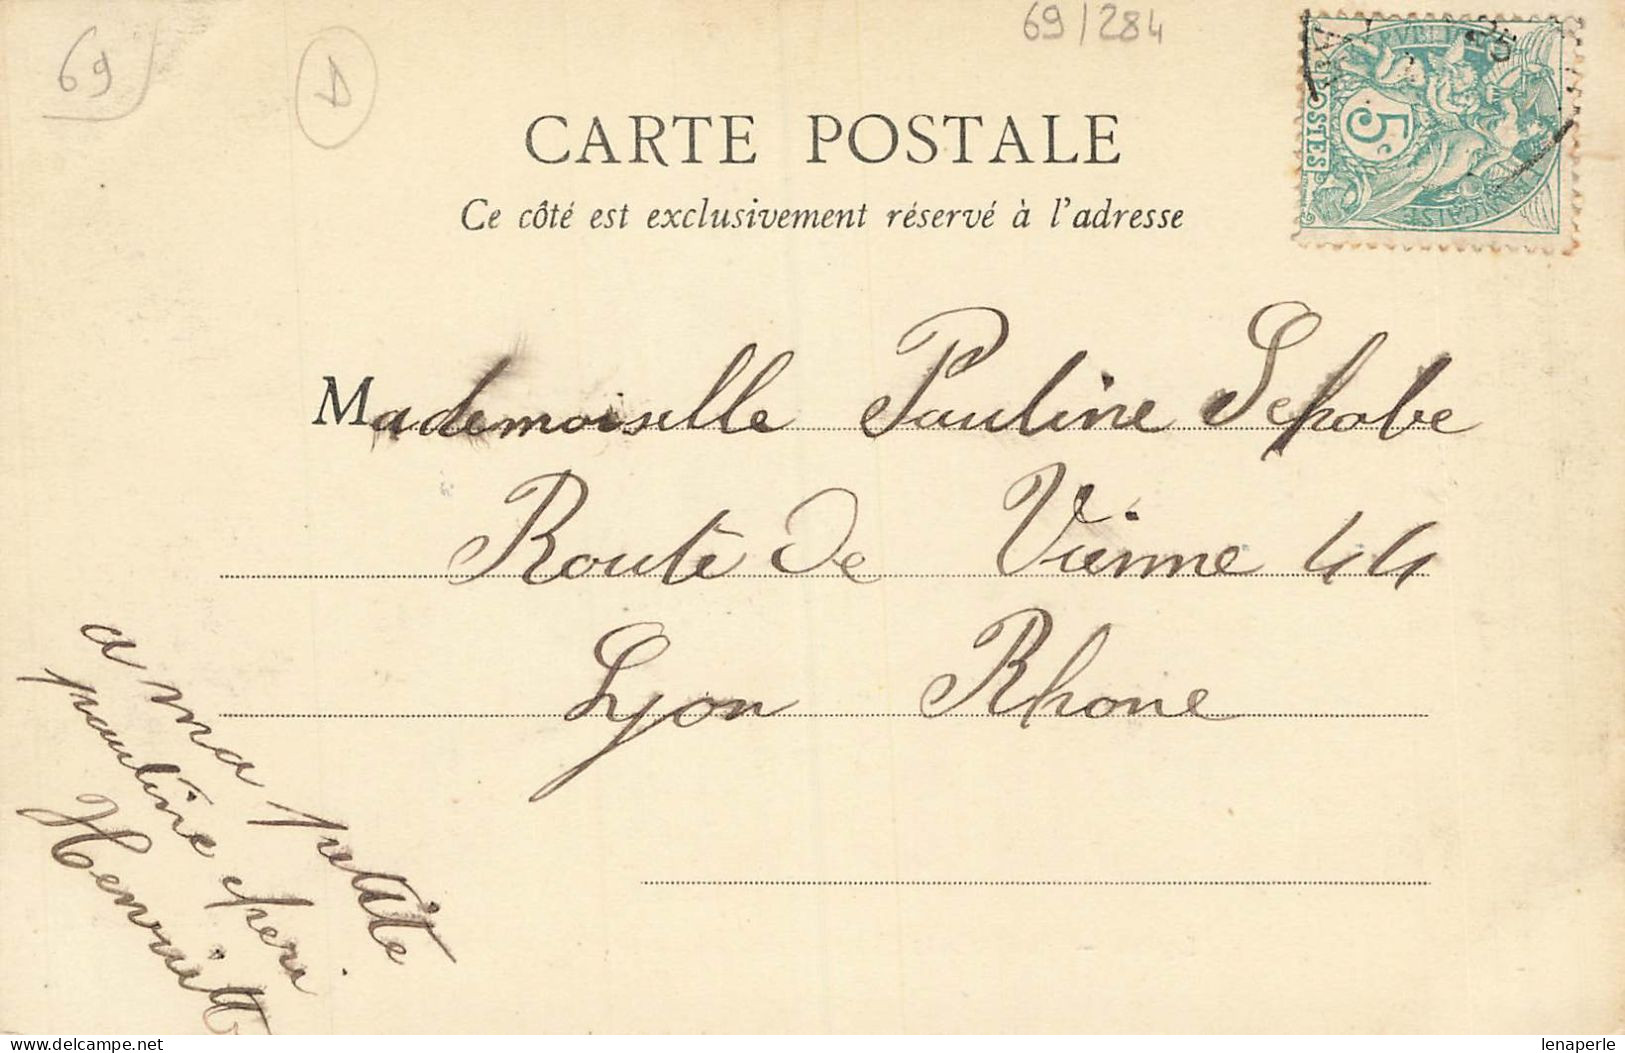 69
D
69/284
CARTE POSTALE
Ce côté est exclusivement réservé à l'adresse
POSTES
5c
Mademoiselle Pauline
Route de Vienne 44
Lyon Rhone
a ma petite
pauline cheri
Henriette
delcampe.net
lenaperle